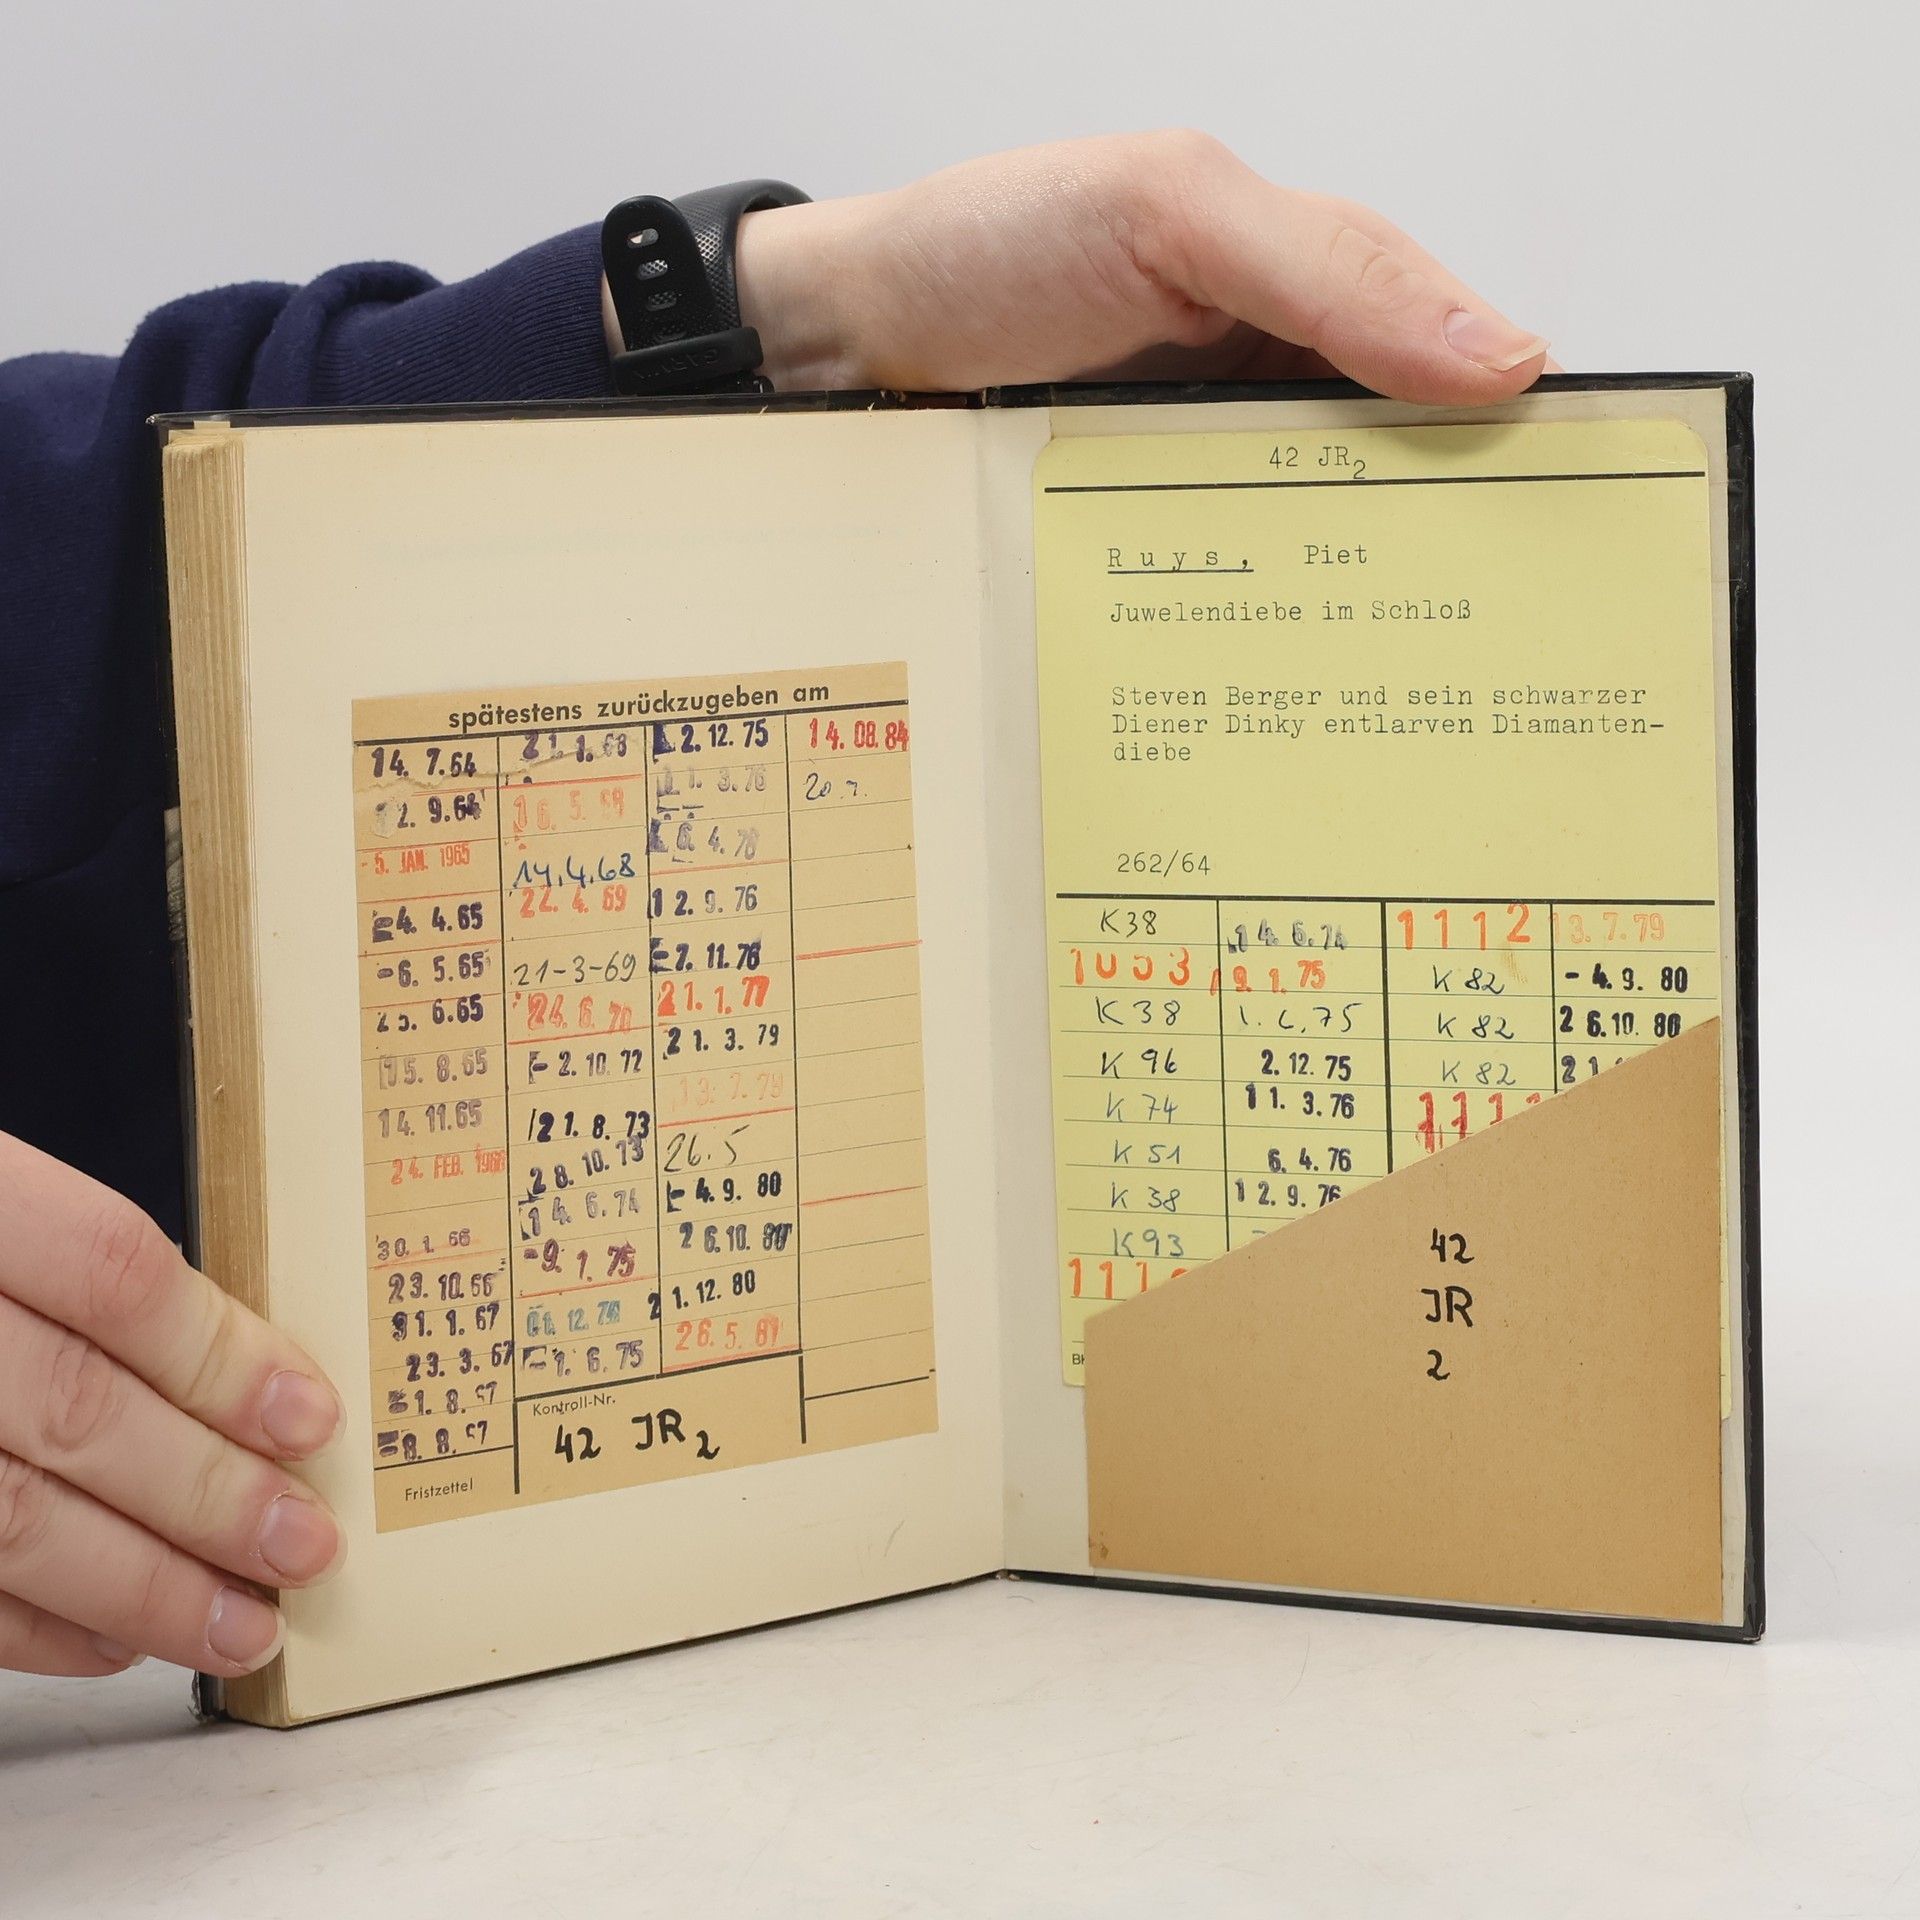 spätestens zurückzugeben am
14. 7.64
12. 9.64
- 5. JAN. 1965
- 4. 4.65
- 6. 5.65
6.65
15. 8.65
14. 11.65
24. FEB. 1966
30. 1. 66
23. 10. 66
31. 1. 67
23. 3. 67
- 1. 8. 67
- 8. 8. 67
Fristzettel
21. 1. 68
16. 5. 68
14.4.68
22. 4. 69
21-3-69
24. 6. 70
- 2. 10. 72
21. 8. 73
28. 10. 73
14. 6. 74
- 9. 1. 75
12. 74
- 1. 6. 75
Kontroll-Nr.
42 JR 2
2. 12. 75
11. 3. 76
6. 4. 76
12. 9. 76
- 7. 11. 76
21. 1. 77
21. 3. 79
13. 7. 79
26. 5
- 4. 9. 80
26. 10. 80
21. 12. 80
26. 5. 81
14. 08. 84
20. 7.
42 JR2
Ruys, Piet
Juwelendiebe im Schloß
Steven Berger und sein schwarzer
Diener Dinky entlarven Diamanten-
diebe
262/64
K38 14. 6. 74 1112 13. 7. 79
1003 9. 1. 75 K 82 - 4. 9. 80
K 38 1. 6. 75 K 82 26. 10. 80
K 96 2. 12. 75 K 82 21
K 74 11. 3. 76
K 51 6. 4. 76
K 38 12. 9. 76
K 93
42
JR
2
GARMIN